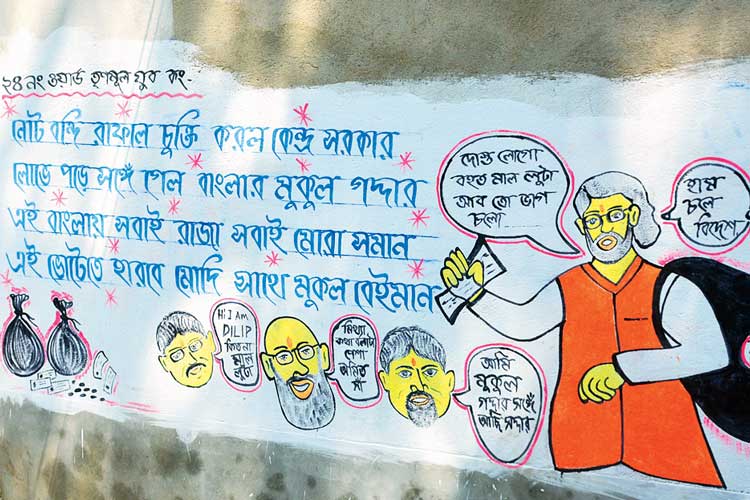 ২৪ নং ওয়ার্ড তৃণমূল যুব কং-
নোট বন্দি রাফাল চুক্তি করল কেন্দ্র সরকার
লোভে পড়ে সঙ্গে গেল বাংলার মুকুল গদ্দার
এই বাংলায় সবাই রাজা সবাই মোরা সমান
এই ভোটেতে হারবে মোদি সাথে মুকল বেইমান
দোস্ত লোগো
বহুত মাল লুটা
আব তো ভাগ
চলো
হাম
চলে
বিদেশ
Hi I AM
DILIP
কিতনা
মাল
লুটা
মিথ্যা
কথা বলাটা
পেশা
অমিত
সা
আমি
মুকুল
গদ্দার সঙ্গে
আছি সর্দার